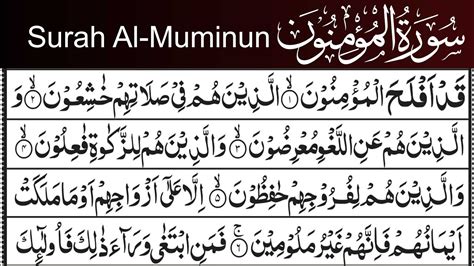 Surah Al-Muminun سُورَةُ الْمُؤْمِنُونَ
قَدْ اَفْلَحَ الْمُؤْمِنُوْنَ ۙ‏﴿۱﴾ الَّذِيْنَ هُمْ فِيْ صَلَاتِهِمْ خٰشِعُوْنَ ۙ‏﴿۲﴾ وَ
الَّذِيْنَ هُمْ عَنِ اللَّغْوِ مُعْرِضُوْنَ ۙ‏﴿۳﴾ وَالَّذِيْنَ هُمْ لِلزَّكٰوةِ فٰعِلُوْنَ ۙ‏﴿۴﴾
وَالَّذِيْنَ هُمْ لِفُرُوْجِهِمْ حٰفِظُوْنَ ۙ‏﴿۵﴾ اِلَّا عَلٰٓي اَزْوَاجِهِمْ اَوْ مَا مَلَكَتْ
اَيْمَانُهُمْ فَاِنَّهُمْ غَيْرُ مَلُوْمِيْنَ ۚ‏﴿۶﴾ فَمَنِ ابْتَغٰي وَرَآءَ ذٰلِكَ فَاُولٰٓئِكَ